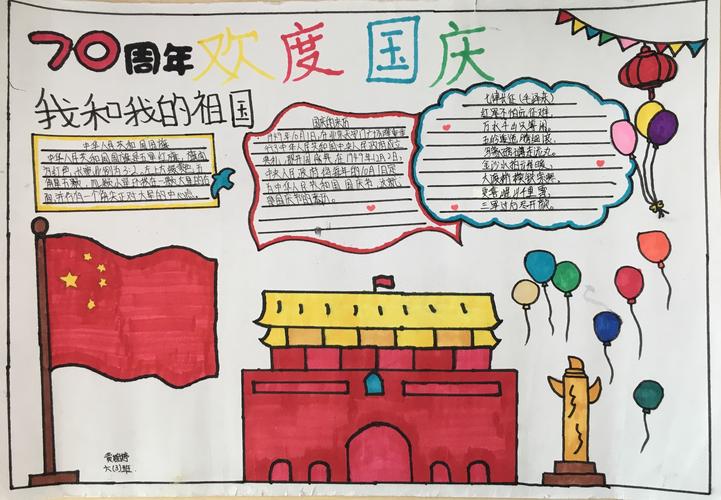 70周年欢度国庆
我和我的祖国
中华人民共和国国旗
中华人民共和国国旗是五星红旗，旗面
为红色，长宽比例为3:2。左上方缀黄色五
角星五颗，四颗小星环拱在一颗大星的右
面，并各有一个角尖正对大星的中心点。
国庆的来历
1949年10月1日，在北京天安门广场隆重举
行了中华人民共和国中央人民政府成立
典礼，即开国盛典。在1949年12月2日，
中央人民政府将每年的10月1日定
为中华人民共和国国庆 这就
是国庆节的来历。
七律长征(毛泽东)
红军不怕远征难，
万水千山只等闲。
五岭逶迤腾细浪，
乌蒙磅礴走泥丸。
金沙水拍云崖暖，
大渡桥横铁索寒。
更喜岷山千里雪，
三军过后尽开颜。
六(3)班